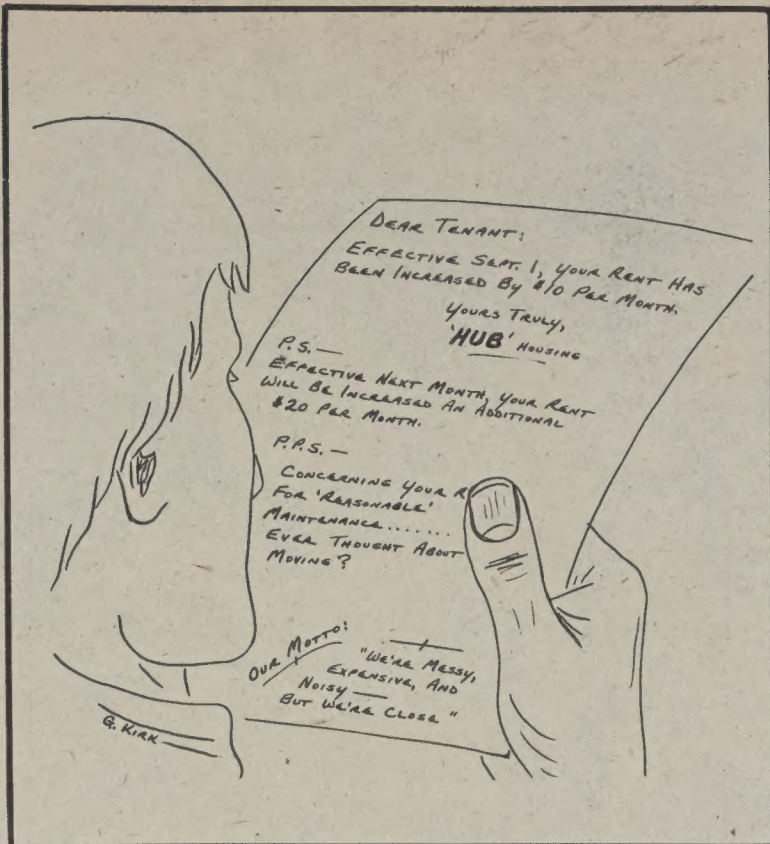 DEAR TENANT:
EFFECTIVE SEPT. 1, YOUR RENT HAS
BEEN INCREASED BY $10 PER MONTH.
YOURS TRULY,
'HUB' HOUSING
P.S.—
EFFECTIVE NEXT MONTH, YOUR RENT
WILL BE INCREASED AN ADDITIONAL
$20 PER MONTH.
P.P.S. —
CONCERNING YOUR R
FOR 'REASONABLE'
MAINTENANCE.......
EVER THOUGHT ABOUT
MOVING?
OUR MOTTO:
"WE'RE MESSY,
EXPENSIVE, AND
NOISY —
BUT WE'RE CLOSE"
G. KIRK